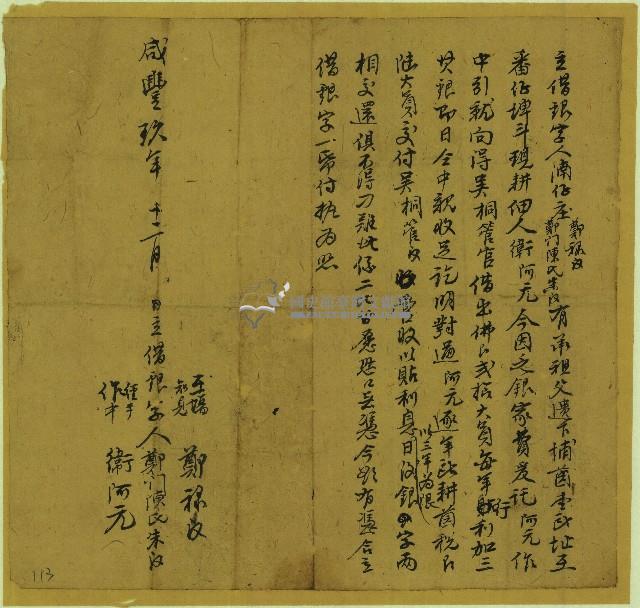 立借銀字人湳仔庄鄭祿官鄭門陳氏朱官有承祖父遺下埔茵壹所址在
番仔埤斗現耕佃人衛阿元今因乏銀家費爰託阿元作
中引就向得吳桐管官借出佛艮弍拾大員每年貼利加三行
其銀即日仝中親收足訖明對過阿元逐年所耕茵稅艮
陸大員交付吳桐管官收以貼利息以三年為限日后銀字兩
相交還俱不得刁難此係二比甘愿恐口無憑今欲有憑合立
借銀字一帋付执為炤
咸豐玖年十二月 日立借銀字人鄭門陳氏朱官
在場知見 鄭祿官
作中 衛阿元
國史館臺灣文獻館
113